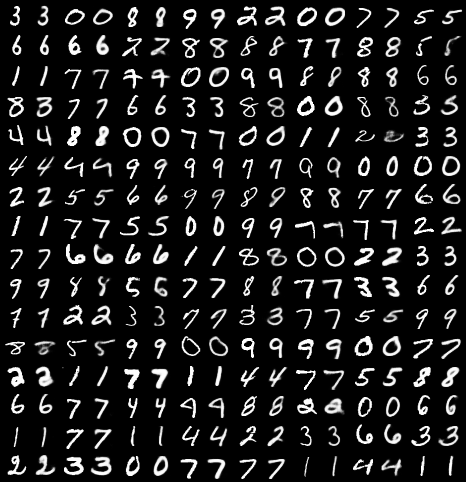 3 3 0 0 8 8 9 9 2 2 0 0 7 7 5 5
6 6 6 6 2 2 8 8 8 8 7 7 8 8 5 5
1 1 7 7 7 7 0 0 9 9 8 8 8 8 6 6
8 3 7 7 6 6 3 3 8 8 0 0 8 8 3 5
4 4 8 8 0 0 7 7 0 0 1 1 2 2 3 3
4 4 4 4 9 9 9 9 7 7 9 9 0 0 0 0
2 2 5 5 6 6 9 9 8 9 8 8 7 7 6 6
1 1 7 7 5 5 0 0 9 9 7 7 7 7 2 2
7 7 6 6 6 6 1 1 8 8 0 0 2 2 3 3
9 9 8 8 5 6 7 7 8 8 7 7 3 3 6 6
7 7 2 2 3 3 7 7 3 3 7 7 5 5 9 9
8 8 5 5 9 9 0 0 9 9 9 9 0 0 7 7
2 2 1 1 7 7 1 1 4 4 7 7 5 5 8 8
6 6 7 7 4 4 4 4 8 8 2 2 0 0 6 6
1 1 7 7 1 1 4 4 2 2 3 3 6 6 3 3
2 2 3 3 0 0 7 7 7 7 1 1 4 4 1 1